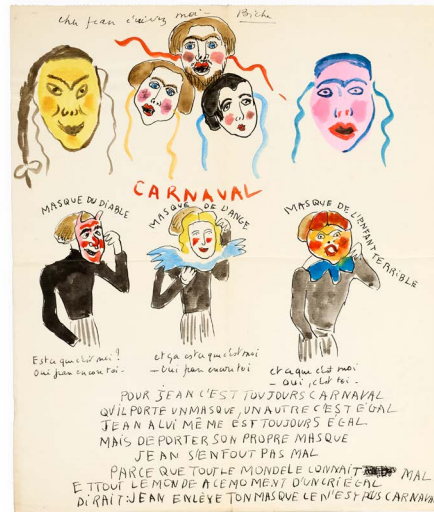 cher jean suivez moi -
CARNAVAL
MASQUE DU DIABLE
MASQUE DE L'ANGE
MASQUE DE L'ENFANT TERRIBLE
Est ce que c'est moi?
Oui jean encore toi -
et ça est ce que c'est moi
- Oui jean encore toi
et ça que c'est moi
- Oui, c'est toi -
POUR JEAN C'EST TOUJOURS CARNAVAL
QU'IL PORTE UN MASQUE, UN AUTRE C'EST EGAL
JEAN A LUI MÊME EST TOUJOURS EGAL
MAIS DE PORTER SON PROPRE MASQUE
JEAN S'ENFOUT PAS MAL
PARCE QUE TOUT LE MONDE LE CONNAIT MAL
ET TOUT LE MONDE A CE MOMENT D'UN CRI EGAL
DIRAIT: JEAN ENLÈVE TON MASQUE CE N'EST PLUS CARNAVA